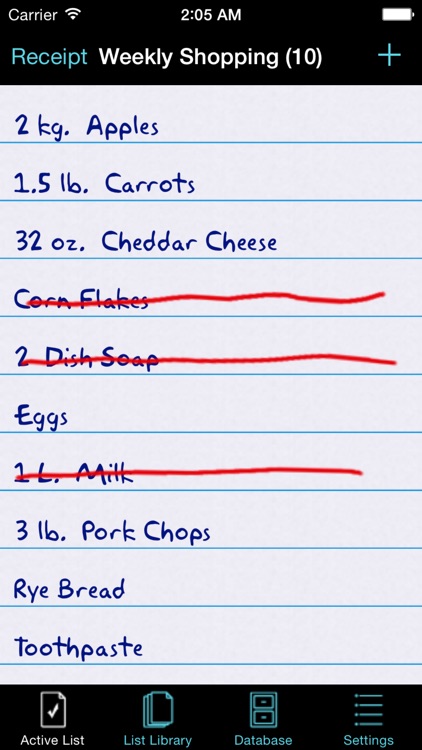 Carrier 2:05 AM
Receipt Weekly Shopping (10) +
2 kg. Apples
1.5 lb. Carrots
32 oz. Cheddar Cheese
Corn Flakes
2 Dish Soap
Eggs
1 L. Milk
3 lb. Pork Chops
Rye Bread
Toothpaste
Active List List Library Database Settings